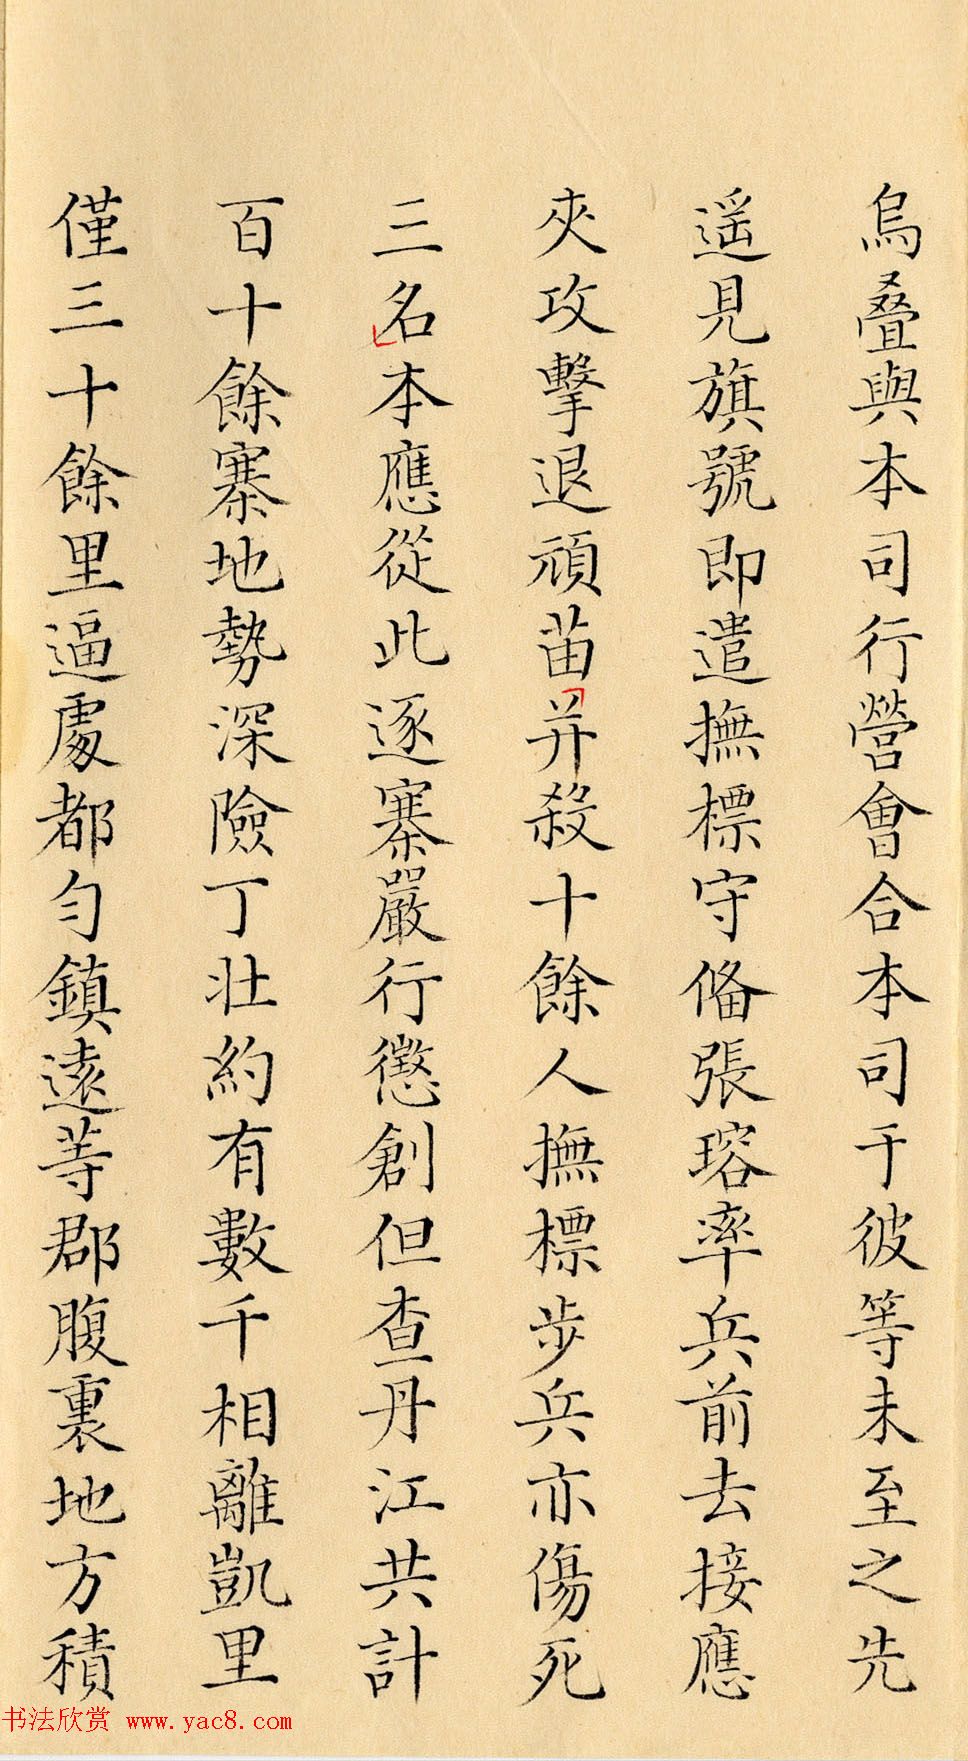 烏叠與本司行營會合本司于彼等未至之先
遥見旗號即遣撫標守俻張瑢率兵前去接應
夾攻擊退頑苗并殺十餘人撫標步兵亦傷死
三名本應從此逐寨嚴行懲創但查丹江共計
百十餘寨地勢深險丁壯約有數千相離凱里
僅三十餘里逼處都匀鎮遠等郡腹裏地方積
书法欣赏 www.yac8.com